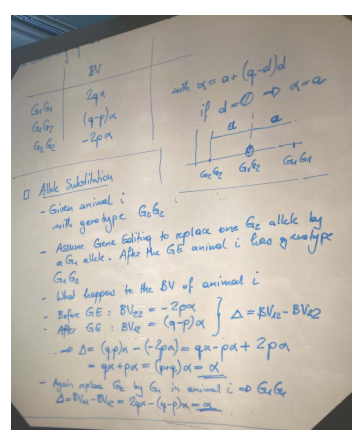 BV
G₁G₁ 2qα
G₁G₂ (q-p)α
G₂G₂ -2pα
with α = a + (q-d)d
if d = 0 ⇒ α = a
a a
G₂G₂ G₁G₂ G₁G₁
Allele Substitution
- Given animal i
with genotype G₂G₂
- Assume Gene Editing to replace one G₂ allele by
a G₁ allele. After the GE animal i has genotype
G₁G₂
- What happens to the BV of animal i
- Before GE : BV₂₂ = -2pα
- After GE : BV₁₂ = (q-p)α } Δ = BV₁₂ - BV₂₂
⇒ Δ = (q-p)α - (-2pα) = qα - pα + 2pα
= qα + pα = (p+q)α = α
- Again replace G₂ by G₁ in animal i ⇒ G₁G₁
Δ = BV₁₁ - BV₁₂ = 2qα - (q-p)α = α